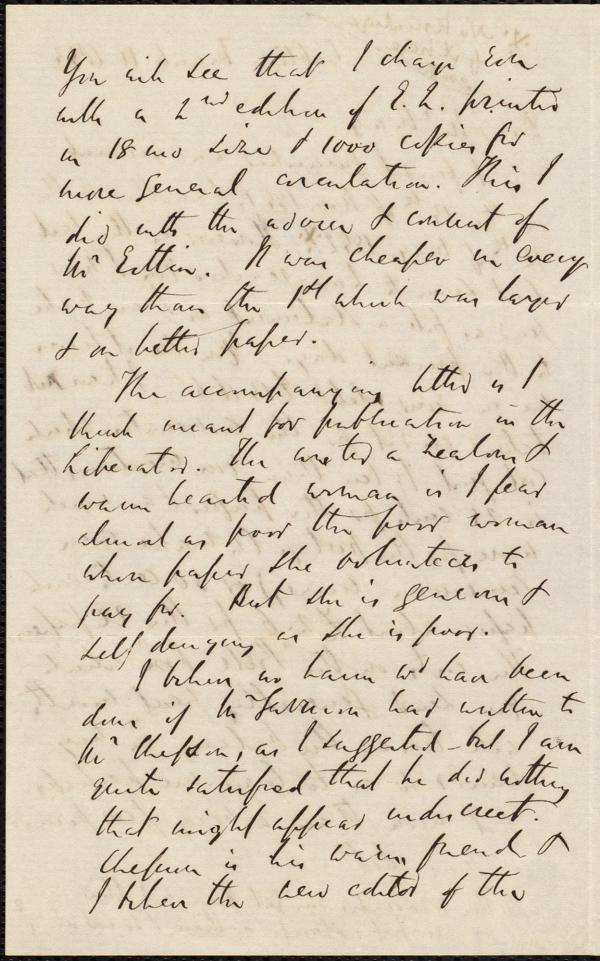 You will see that I charge you
with a 2nd edition of E. L. printed
in 18 mo size & 1000 copies for
more general circulation. This I
did with the advice & consent of
Mr Estlin. It was cheaper in every
way than the 1st which was larger
& on better paper.
The accompanying letter is I
think meant for publication in the
Liberator. The writer a zealous &
warm hearted woman is I fear
almost as poor the poor woman
whose paper she volunteers to
pay for. But she is generous &
self denying as she is poor.
I believe no harm wd have been
done if Mr Garrison had written to
Mr Chesson, as I suggested - but I am
quite satisfied that he did nothing
that might appear indiscreet.
Chesson is his warm friend &
I believe the new editor of the